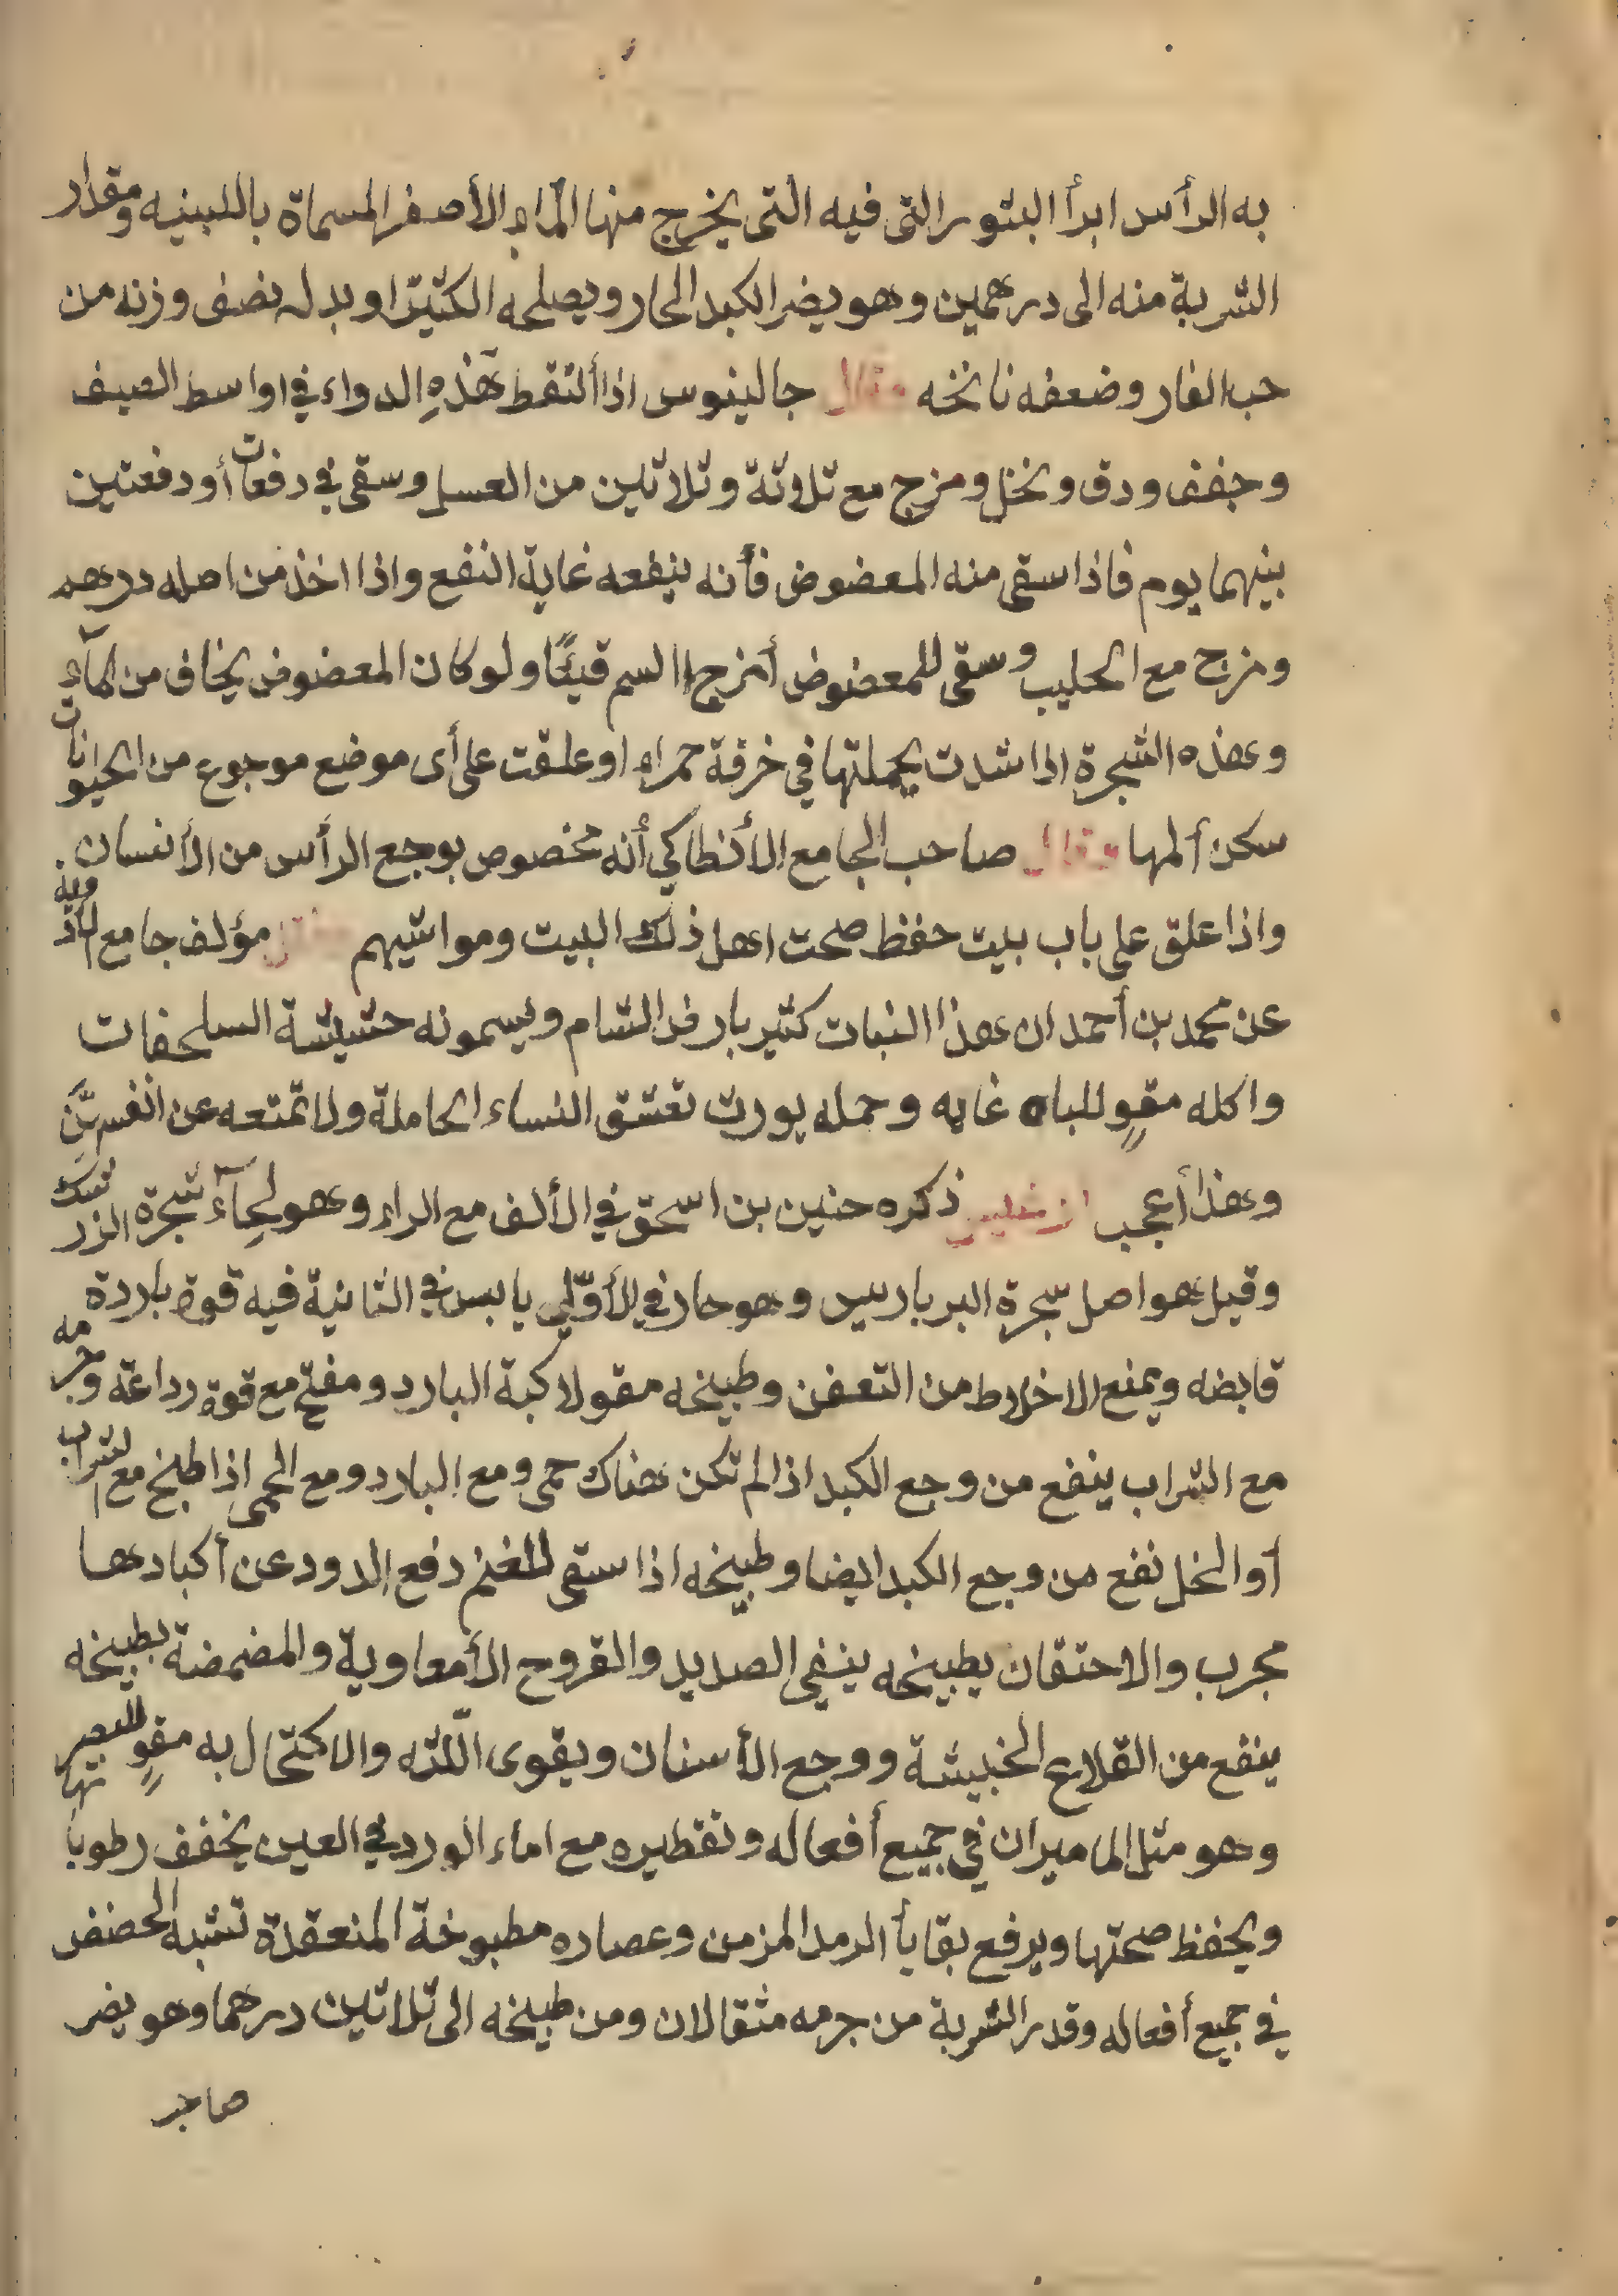 به الرأس ابرأ البثور التى فيه التى يخرج منها المآء الأصفر المسماة باللبنيه ومقدار
الشربة منه الى درهمين وهو يضر الكبد الحار ويصلحه الكثيرا وبدله نصف وزنه من
حب الغار وضعفه نانخه وقال جالينوس اذا ألتقط هذه الدواء في اواسط الصيف
وجفف ودق ونخل ومزج مع ثلاثة وثلاثين من العسل وسقى في دفعات أو دفعتين
بينهما يوم فاذا سقى منه المعضوض فأنه ينفعه غاية النفع واذا اخذ من اصله درهم
ومزج مع الحليب وسقى للمعضوض أخرج السم قيئًا ولو كان المعضوض يخاف من المآء
وهذه الشجرة اذا شدت بجملتها في خرقة حمراء او علقت على أى موضع موجوع من الحيوانات
سكن ألمها وقال صاحب الجامع الأنطاكي أنه مخصوص بوجع الرأس من الأنسان
واذا علق على باب بيت حفظ صحت اهل ذلك البيت ومواشيهم وقال مؤلف جامع الأدوية
عن محمد بن أحمد ان هذا النبات كثير بارض الشام ويسمونه حشيشة السلحفات
واكله مقوٍ للباه غايه وحمله يورث تعشق النساء الحاملة ولا تمتعه عن انفسهنّ
وهذا أعجب ارغيس ذكره حنين بن اسحق في الألف مع الراء وهو لحآء شجرة الزرشك
وقيل هو اصل شجرة البربارس وهو حار في الأوّلى يابس في الثانية فيه قوة باردة
قابضه ويمنع الاخلاط من التعفن وطبيخه مقو لاكبة البارد ومفتح مع قوة رداعة وجرمه
مع الشراب ينفع من وجع الكبد اذا لم تكن هناك حمى ومع البلارد ومع الحمى اذا طبخ مع الشراب
أو الخل نفع من وجع الكبد ايضا وطبيخه اذا سقى للغنم دفع الدود عن أكبادها
مجرب والاحتقان بطبيخه ينفى الصديد والقروح الأمعاوية والمضمضة بطبيخه
ينفع من القلاع الخبيثة ووجع الأسنان ويقوى اللّثه والاكتحال به مقوٍ للبصر
وهو مثل الماميران في جميع أفعاله وتقطيره مع اماء الورد في العين يخفف رطوباتها
ويحفظ صحتها ويرفع بقايأ الرمد المزمن وعصاره مطبوخة المنعقدة تشبه الحضض
في جميع أفعاله وقدر الشربة من جرمه مثقالان ومن طبيخه الى ثلاثين درهما وهو يضر